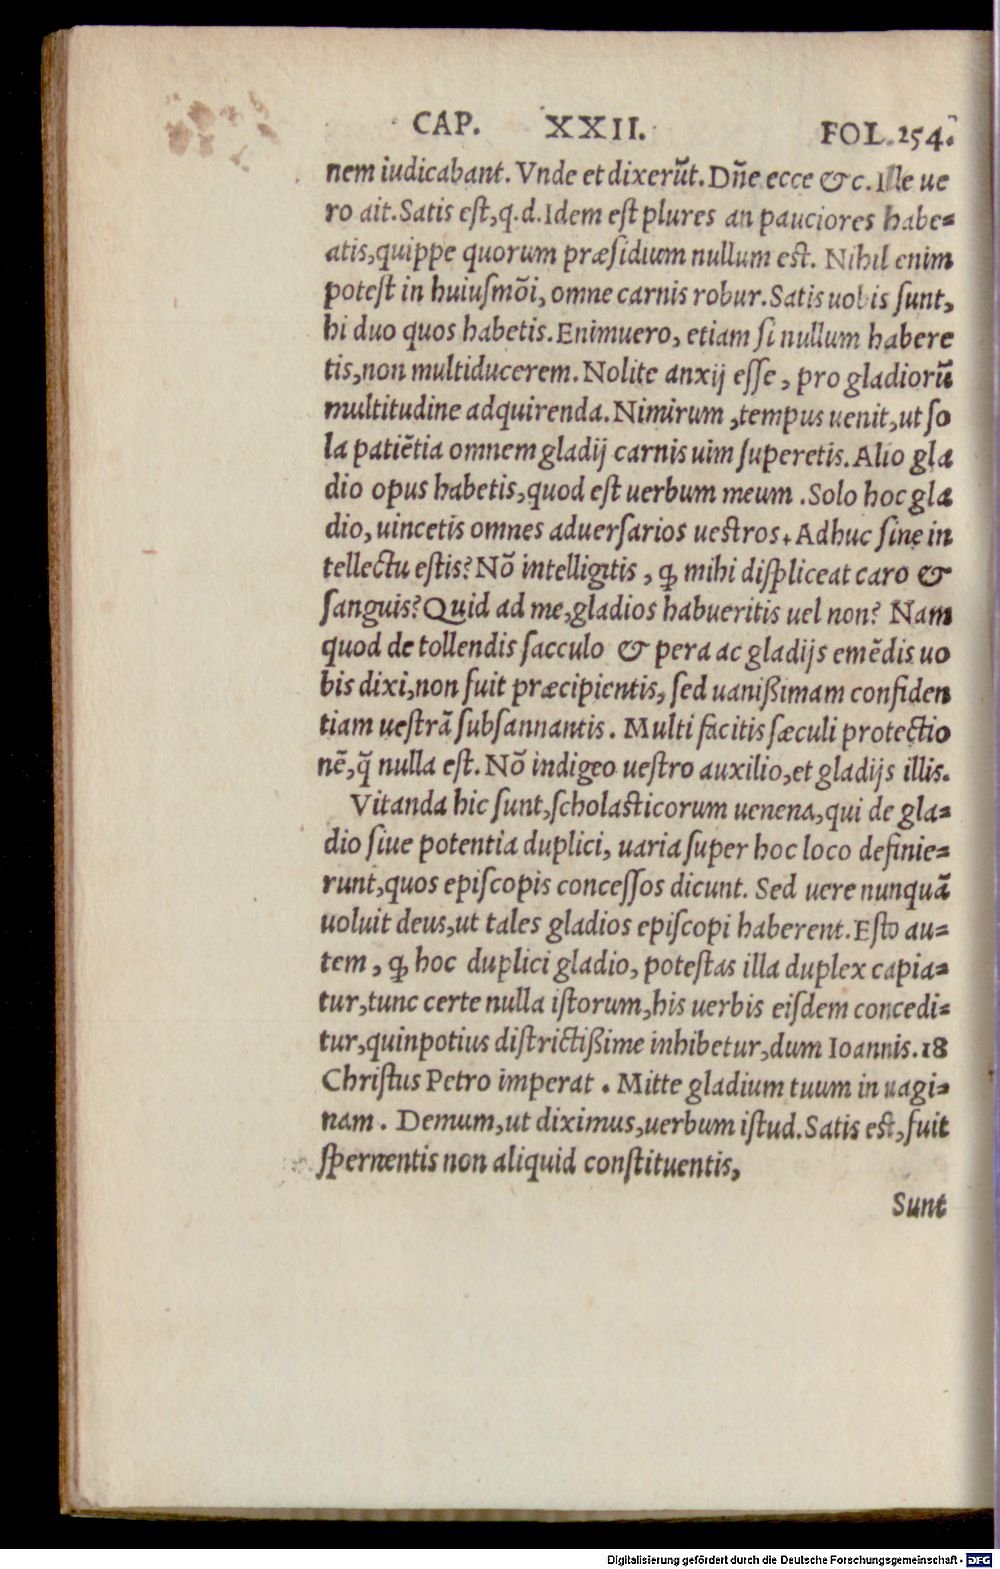 CAP. XXII. FOL. 254.
nem iudicabant. Vnde et dixerũt. Dñe ecce &c. Ille ue
ro ait. Satis eſt, q.d. Idem eſt plures an pauciores habe=
atis, quippe quorum præſidium nullum est. Nihil enim
poteſt in huiuſmõi, omne carnis robur. Satis uobis ſunt,
hi duo quos habetis. Enimuero, etiam ſi nullum habere
tis, non multiducerem. Nolite anxij eſſe, pro gladiorũ
multitudine adquirenda. Nimirum, tempus uenit, ut ſo
la patiẽtia omnem gladij carnis uim ſuperetis. Alio gla
dio opus habetis, quod eſt uerbum meum. Solo hoc gla
dio, uincetis omnes aduerſarios uestros. Adhuc ſine in
tellectu eſtis? Nõ intelligitis, ꝙ mihi diſpliceat caro &
ſanguis? Quid ad me, gladios habueritis uel non? Nam
quod de tollendis ſacculo & pera ac gladijs emẽdis uo
bis dixi, non fuit præcipientis, ſed uanißimam confiden
tiam ueſtrã ſubſannantis. Multi facitis ſæculi protectio
nẽ, q̃ nulla eſt. Nõ indigeo ueſtro auxilio, et gladijs illis.
Vitanda hic ſunt, ſcholasticorum uenena, qui de gla=
dio ſiue potentia duplici, uaria ſuper hoc loco definie=
runt, quos epiſcopis conceſſos dicunt. Sed uere nunquã
uoluit deus, ut tales gladios epiſcopi haberent. Eſto au=
tem, ꝙ hoc duplici gladio, poteſtas illa duplex capia=
tur, tunc certe nulla iſtorum, his uerbis eiſdem concedi=
tur, quinpotius diſtrictißime inhibetur, dum Ioannis. 18
Chriſtus Petro imperat. Mitte gladium tuum in uagi=
nam. Demum, ut diximus, uerbum iſtud. Satis est, fuit
ſpernentis non aliquid conſtituentis,
Sunt
Digitalisierung gefördert durch die Deutsche Forschungsgemeinschaft - DFG